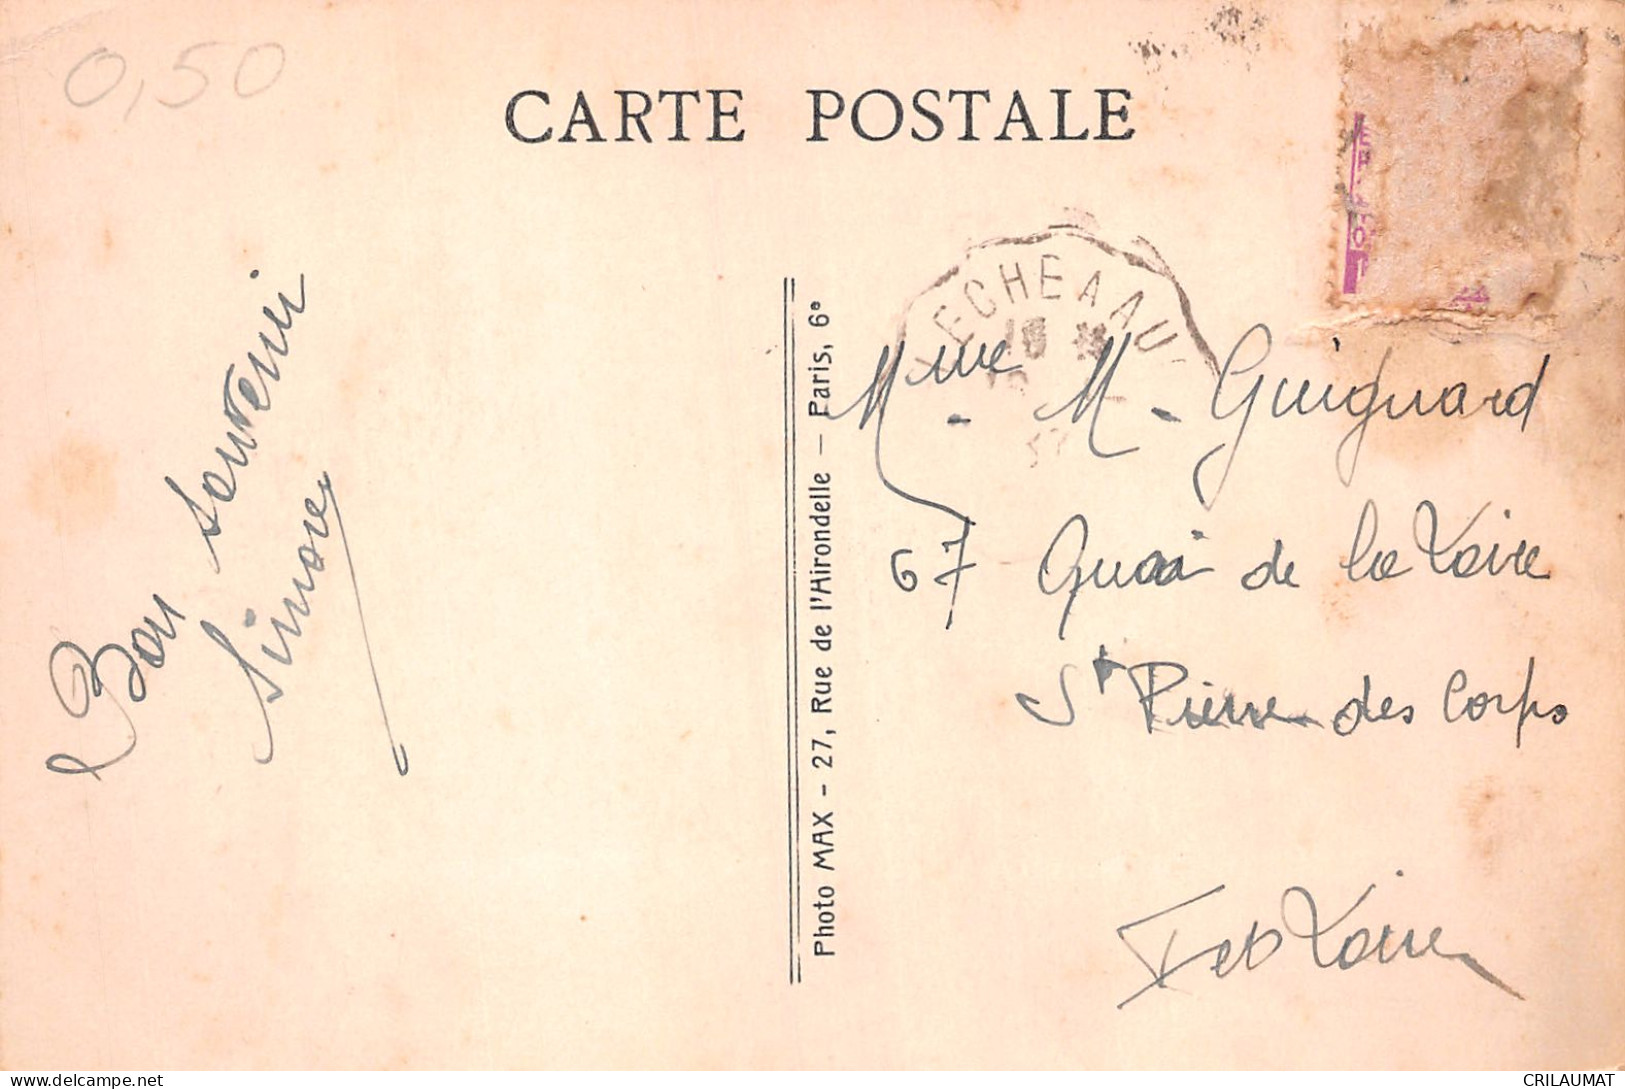 0,50
CARTE POSTALE
ECHE A AU
Bon souvenir
Simone
Photo MAX - 27, Rue de l'Hirondelle - Paris, 6e
Mme M. Guignard
67 Quai de la Loire
St Pierre des Corps
I et Loire
CRILAUMAT